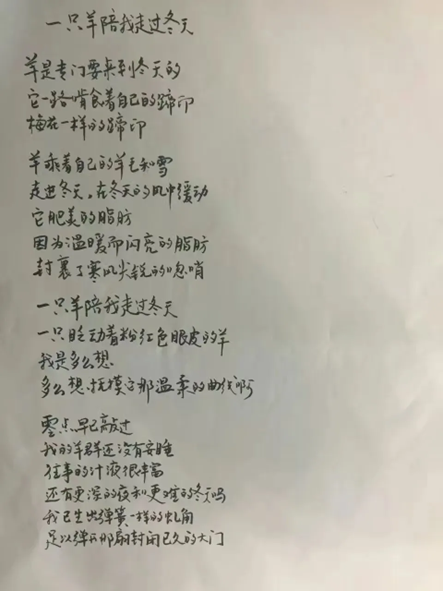 一只羊陪我走过冬天
羊是专门要来到冬天的
它一路啃食着自己的蹄印
梅花一样的蹄印
羊乘着自己的羊毛和雪
走进冬天，在冬天的风中缓动
它肥美的脂肪
因为温暖而闪亮的脂肪
封裹了寒风尖锐的唿哨
一只羊陪我走过冬天
一只眨动着粉红色眼皮的羊
我是多么想
多么想抚摸它那温柔的曲线啊
零点早已敲过
我的羊群还没有安睡
往事的汁液很丰富
还有更深的夜和更难的冬天吗
我已生出弹簧一样的虬角
足以弹开那扇封闭已久的大门